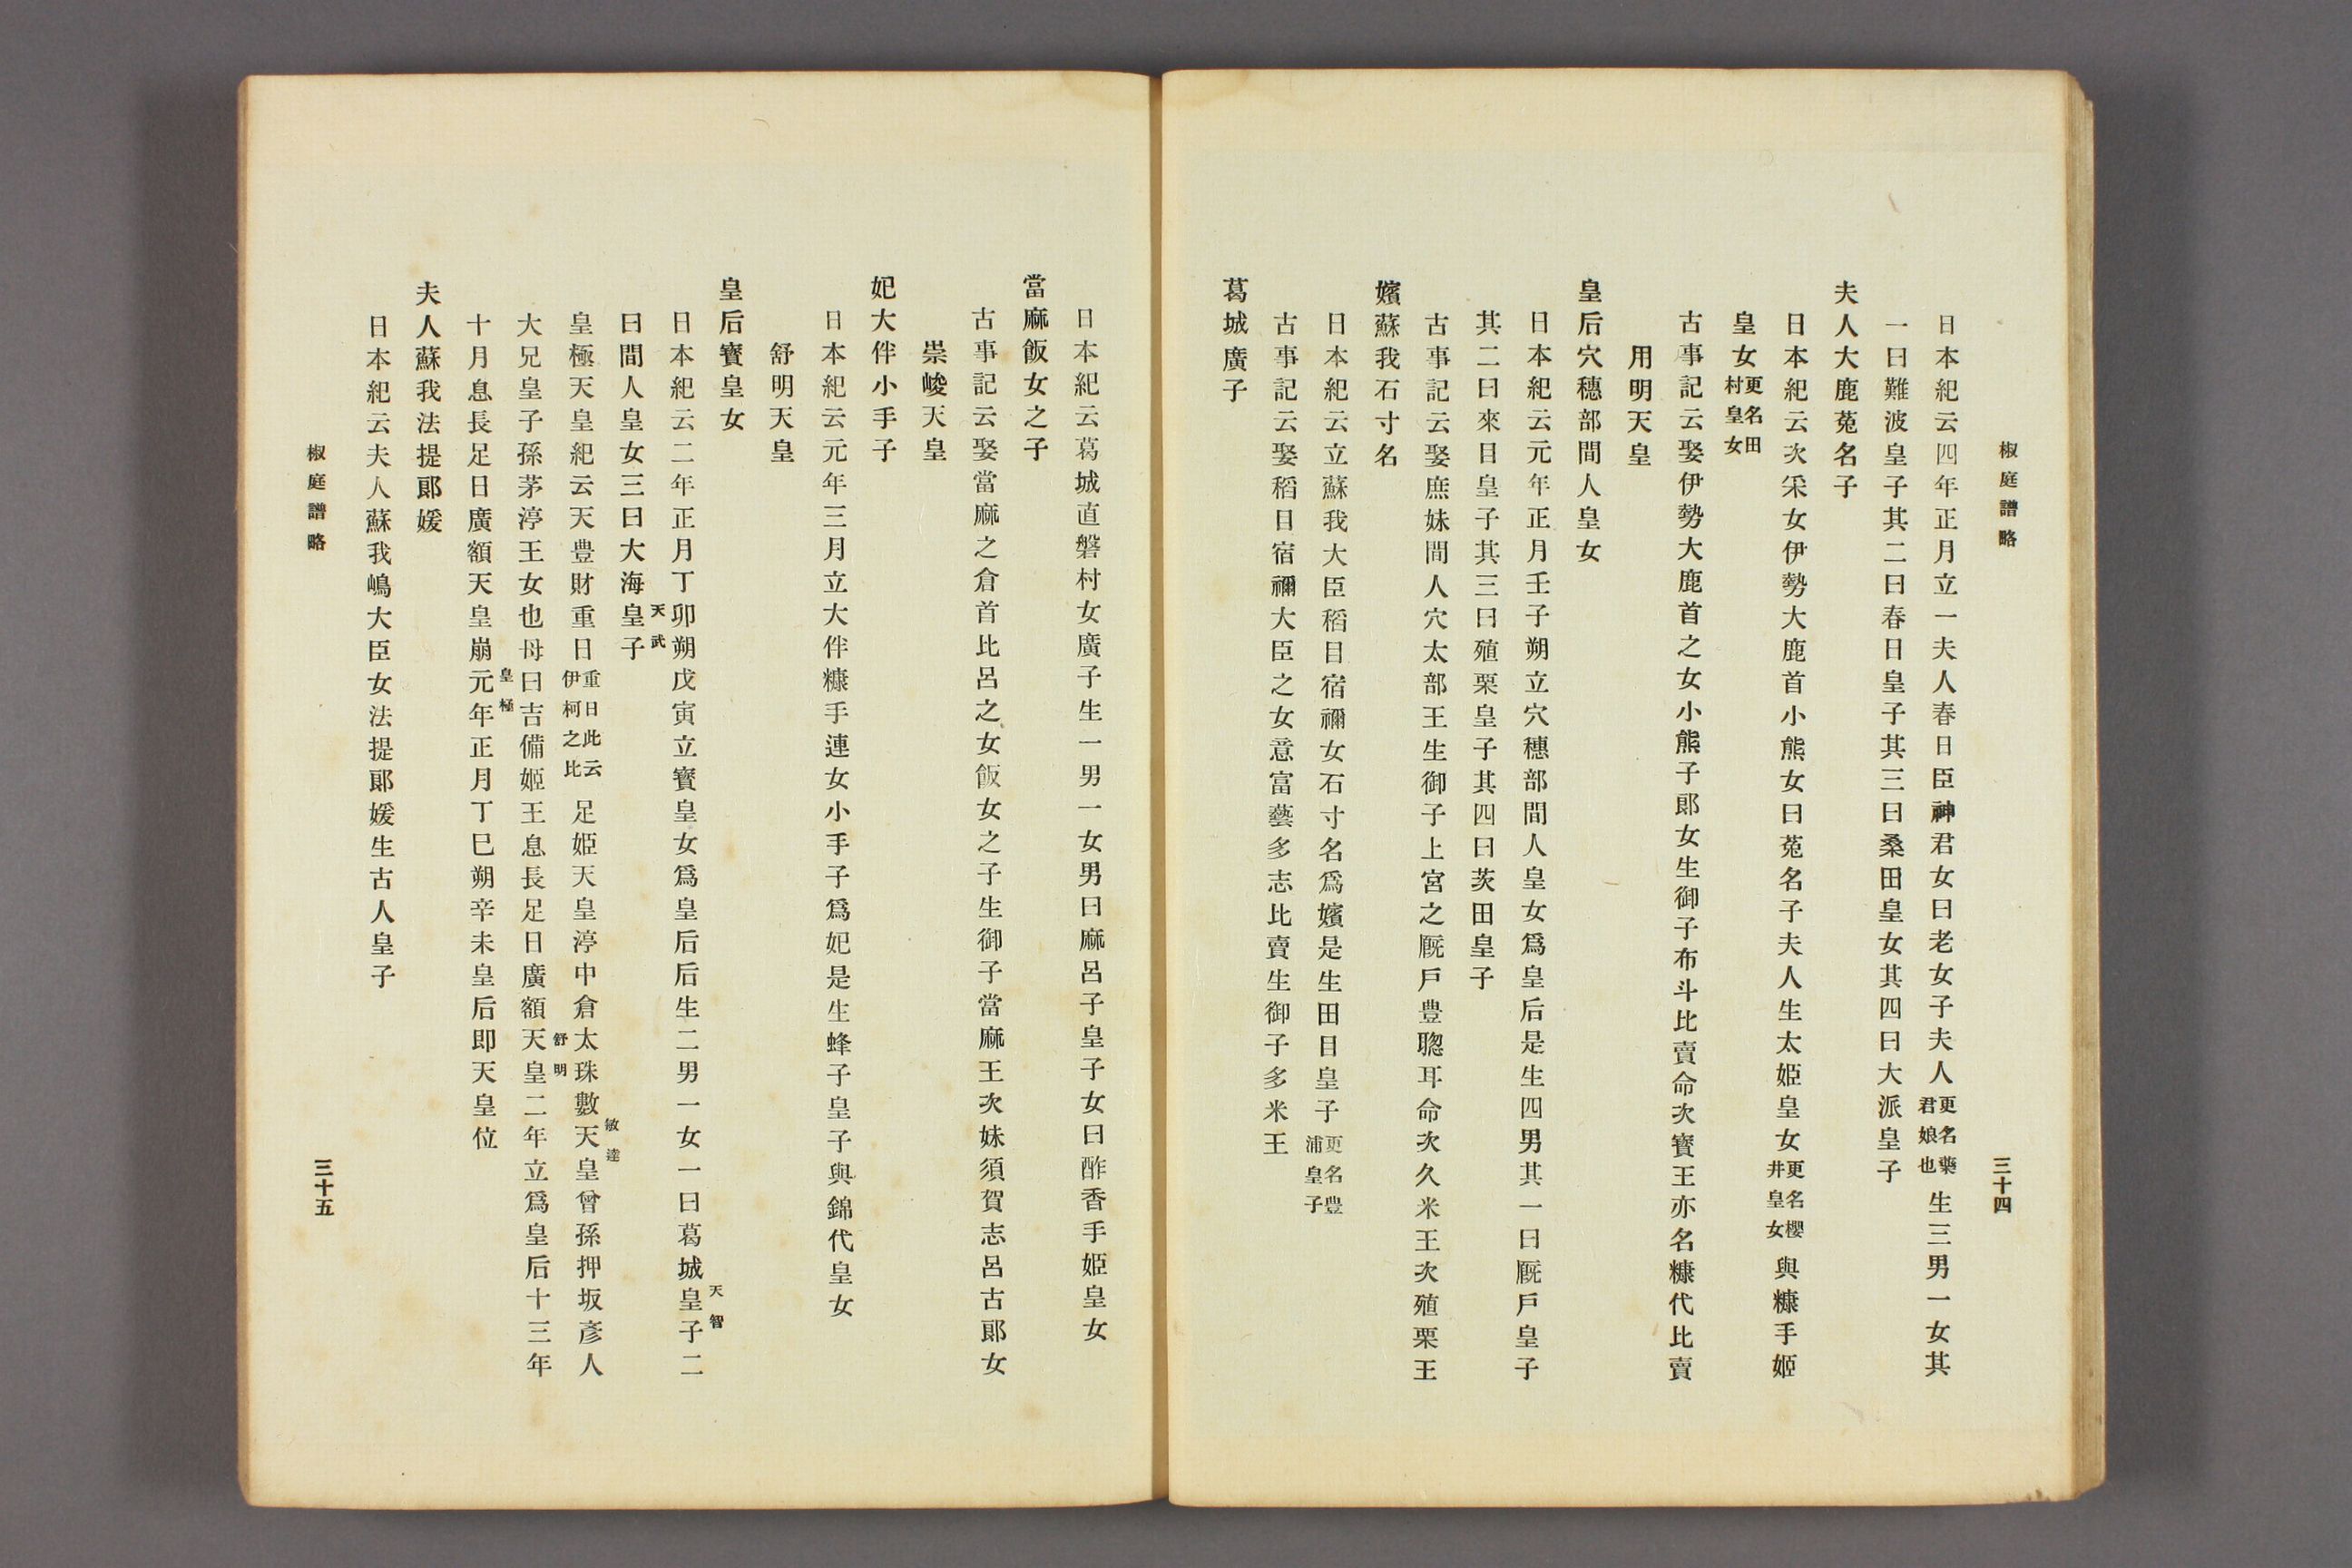 椒庭譜略
三十四
日本紀云四年正月立一夫人春日臣神君女曰老女子夫人更名藥君娘也生三男一女其
一曰難波皇子其二曰春日皇子其三曰桑田皇女其四曰大派皇子
夫人大鹿菟名子
日本紀云次采女伊勢大鹿首小熊女曰菟名子夫人生太姫皇女更名櫻井皇女與糠手姫
皇女更名田村皇女
古事記云娶伊勢大鹿首之女小熊子郎女生御子布斗比賣命次寳王亦名糠代比賣
用明天皇
皇后穴穗部間人皇女
日本紀云元年正月壬子朔立穴穗部間人皇女爲皇后是生四男其一曰厩戶皇子
其二曰來目皇子其三曰殖栗皇子其四曰茨田皇子
古事記云娶庶妹間人穴太部王生御子上宮之厩戶豊聰耳命次久米王次殖栗王
嬪蘇我石寸名
日本紀云立蘇我大臣稻目宿禰女石寸名爲嬪是生田目皇子更名豊浦皇子
古事記云娶稻目宿禰大臣之女意富藝多志比賣生御子多米王
葛城廣子
日本紀云葛城直磐村女廣子生一男一女男曰麻呂子皇子女曰酢香手姫皇女
當麻飯女之子
古事記云娶當麻之倉首比呂之女飯女之子生御子當麻王次妹須賀志呂古郎女
崇峻天皇
妃大伴小手子
日本紀云元年三月立大伴糠手連女小手子爲妃是生蜂子皇子與錦代皇女
舒明天皇
皇后寳皇女
日本紀云二年正月丁卯朔戊寅立寳皇女爲皇后后生二男一女一曰葛城皇子天智二
曰間人皇女三曰大海皇子天武
皇極天皇紀云天豊財重日重日此云伊柯之比足姫天皇渟中倉太珠數天皇敏達曾孫押坂彥人
大兄皇子孫茅渟王女也母曰吉備姫王息長足日廣額天皇舒明二年立爲皇后十三年
十月息長足日廣額天皇崩元年皇極正月丁巳朔辛未皇后即天皇位
夫人蘇我法提郎媛
日本紀云夫人蘇我嶋大臣女法提郎媛生古人皇子
椒庭譜略
三十五